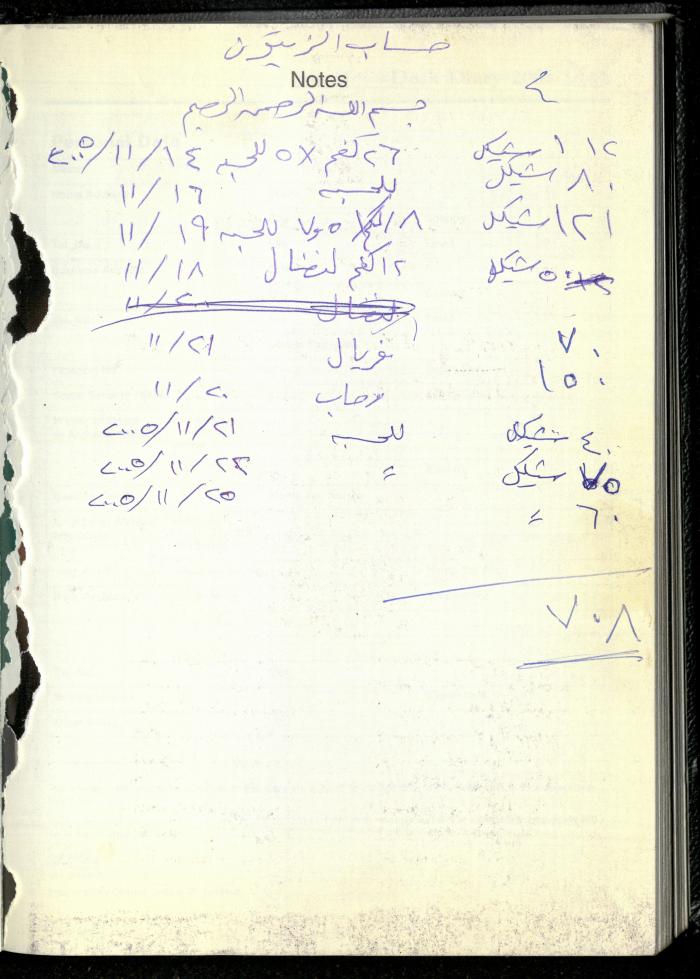 حساب الزيتون
Notes
٤
بسم الله الرحمن الرحيم
١١٢ شيكل ٢٦ كغم ٥X للحبه ٢٠٠٥/١١/١٤
٨٠ شيكل للحبه ١١/١٦
١٢١ شيكل ١٨ كغم ٥ و٧ للحبه ١١/١٩
٥٠ شيكل ١٢ كغم لنضال ١١/١٨
لنضال ١١/٢٠
٧٠ فريال ١١/٢١
١٥٠ وهاب ١١/٢٠
٤٠ شيكل للحبه ٢٠٠٥/١١/٢١
٧٥ شيكل " ٢٠٠٥/١١/٢٣
٦٠ " ٢٠٠٥/١١/٢٥
٧٠٨